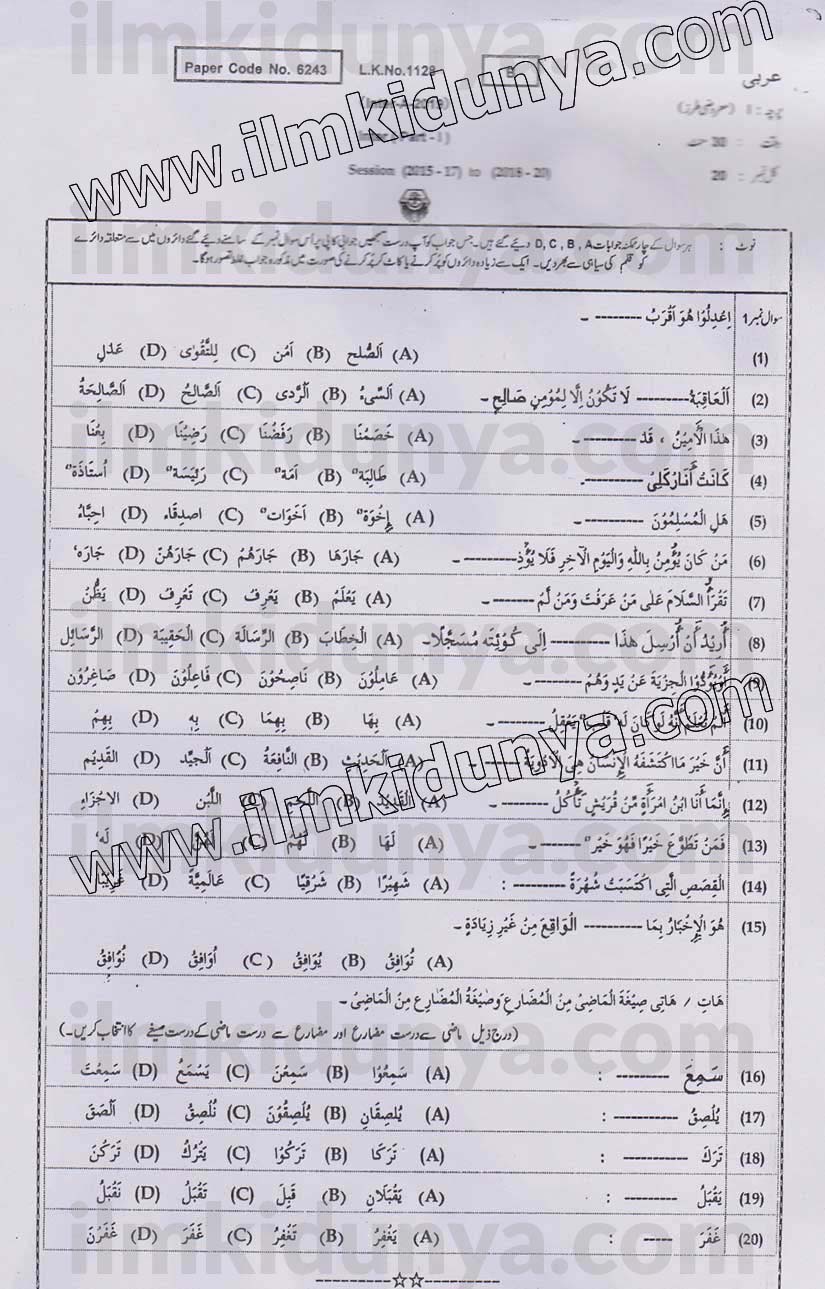 www.ilmkidunya.com
Paper Code No. 6243 L.K.No.1128 عربی
(Inter-A-2019) پرچہ : I (معروضی طرز)
Inter (Part - I) وقت : 30 منٹ
Session (2015 - 17) to (2018 - 20) کل نمبر : 20
نوٹ : ہر سوال کے چار ممکنہ جوابات D , C , B , A دیئے گئے ہیں۔ جس جواب کو آپ درست سمجھیں جوابی کاپی پر اُس سوال نمبر کے سامنے دیئے گئے دائروں میں سے متعلقہ دائرے
کو قلم کی سیاہی سے بھر دیں۔ ایک سے زیادہ دائروں کو پُر کرنے یا کاٹ کر پُر کرنے کی صورت میں مذکورہ جواب غلط تصور ہوگا۔
سوال نمبر 1 اِعْدِلُوْا هُوَ اَقْرَبُ -------- ۔
(1) (A) اَلصُّلح (B) اَمْن (C) لِلتَّقْوٰى (D) عَدْلٍ
(2) اَلْعَاقِبَةُ --------- لَا تَكُوْنُ اِلَّا لِمُوْمِنٍ صَالِحٍ ۔ (A) اَلسِّیءُ (B) اَلرَّدى (C) اَلصَّالِحُ (D) اَلصَّالِحَةُ
(3) هٰذَا الْاَمِيْنُ ، قَدْ --------- ۔ (A) خَصَمْنَا (B) رَفَضْنَا (C) رَضِيْنَا (D) بِعْنَا
(4) كَانَتْ أَنَارْكَلِىْ ---------۔ (A) طَالِبَةً (B) اَمَةً (C) رَئِيْسَةً (D) اُسْتَاذَةً
(5) هَلِ الْمُسْلِمُوْنَ --------- ۔ (A) إِخْوَةٌ (B) اَخَوَاتٌ (C) اصدِقَاء (D) احِبَّاءُ
(6) مَنْ كَانَ يُؤْمِنُ بِاللّٰهِ وَالْيَوْمِ الْاٰخِرِ فَلَا يُؤْذِ---------۔ (A) جَارَهَا (B) جَارَهُمْ (C) جَارَهُنَّ (D) جَارَه‘
(7) تَقْرَأُ السَّلَامَ عَلٰى مَنْ عَرَفْتَ وَمَنْ لَمْ -------- ۔ (A) يَعْلَمْ (B) يَعْرِفْ (C) تَعْرِفْ (D) يَظُنْ
(8) أُرِيْدُ أَنْ أُرْسِلَ هٰذَا --------- اِلٰى كُوْئِتَه مُسَجَّلًا۔ (A) الْخِطَابَ (B) الرِّسَالَة (C) الْحَقِيْبَة (D) الرَّسَائِل
(9) الْجِزْيَةَ عَنْ يَدٍ وَهُمْ --------- ۔ (A) عَامِلُوْنَ (B) نَاصِحُوْنَ (C) فَاعِلُوْنَ (D) صَاغِرُوْنَ
(10) لَوْ كَانَ يَعْقِلُ -------- ۔ (A) بِهَا (B) بِهِمَا (C) بِهٖ (D) بِهِمْ
(11) أَنَّ خَيْرَ مَا اكْتَشَفَهُ الْاِنْسَانُ هِىَ الْاَدْوِيَةُ -------- (A) اَلْحَدِيْث (B) النَّافِعَةُ (C) اَلْجيِّد (D) القَدِيْم
(12) إِنَّمَا أَنَا ابْنُ امْرَأَةٍ مِّنْ قُرَيْشٍ تَأْكُلُ -------- ۔ (A) القَدِيْدَ (B) اللَّحْم (C) اللَّبَن (D) الاجْزَاءِ
(13) فَمَنْ تَطَوَّعَ خَيْرًا فَهُوَ خَيْرٌ --------۔ (A) لَهَا (B) لَهُمْ (C) (D) لَه‘
(14) الْقِصَصِ الَّتِى اكْتَسَبَتْ شُهْرَةً --------- : (A) شَهِيْرًا (B) شَرْقِيًا (C) عَالَمِيَّةً (D)
(15) هُوَ الْاِخْبَارُ بِمَا --------- الْوَاقِعَ مِنْ غَيْرِ زِيَادَةٍ ۔
(A) تُوَافِقُ (B) يُوَافِقُ (C) اُوَافِقُ (D) نُوَافِقُ
هَاتِ / هَاتِى صِيْغَةَ الْمَاضِىْ مِنَ الْمُضَارِعِ وَصِيْغَةَ الْمُضَارِعِ مِنَ الْمَاضِىْ ۔
(درج ذیل ماضی سے درست مضارع اور مضارع سے درست ماضی کے درست صیغے کا انتخاب کریں۔)
(16) سَمِعَ -------- : (A) سَمِعُوْا (B) سَمِعْنَ (C) يَسْمَعُ (D) سَمِعْتَ
(17) يُلْصِقُ ---------- : (A) يُلْصِقَانِ (B) يُلْصِقُوْنَ (C) نُلْصِقُ (D) اَلْصَقَ
(18) تَرَكَ ---------- : (A) تَرَكَا (B) تَرَكُوْا (C) يَتْرُكُ (D) تَرَكْنَ
(19) يَقْبَلُ -------- : (A) يَقْبَلَانِ (B) قَبِلَ (C) تَقْبَلُ (D) نَقْبَلُ
(20) غَفَرَ ----- : (A) يَغْفِرُ (B) تَغْفِرُ (C) غَفَرَ (D) غَفَرْنَ
----------☆☆----------